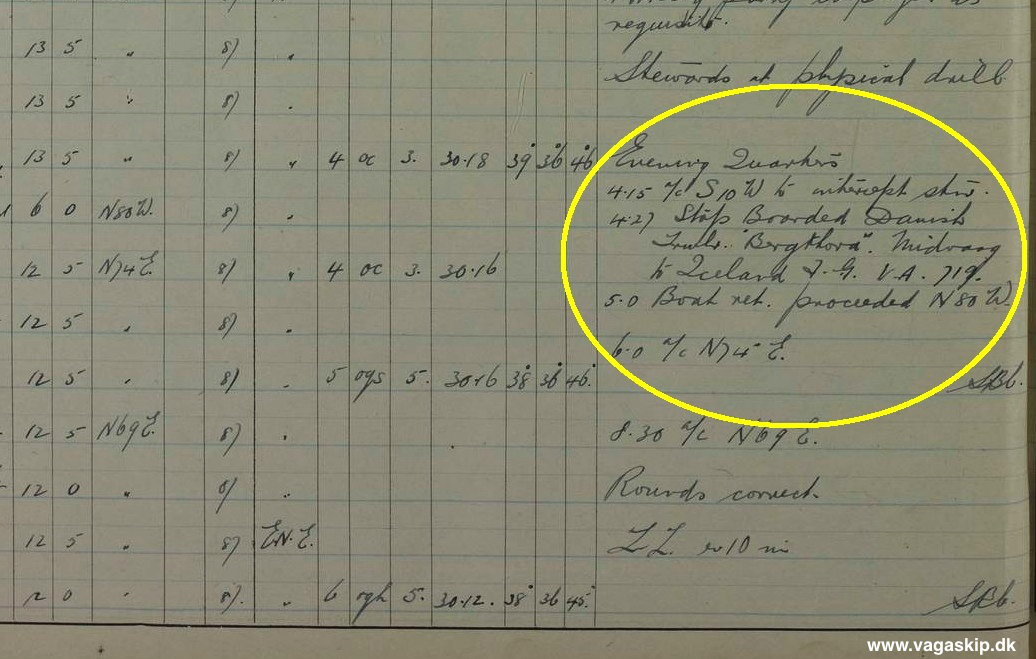 requisite.
13 5 " 87 "
Stewards at physical drill
13 5 " 87 "
13 5 " 87 " 4 oc 3. 30.18 39 36 46 Evening Quarters
4.15 a/c S 10 W to intercept stmr.
6 0 N80W. 87 "
4.27 Stop Boarded Danish
Trwlr. "Bergthora". Midvaag
12 5 N74E. 87 " 4 oc 3. 30.16
to Iceland F.G. V.A. 719.
5.0 Boat ret. proceeded N 80 W.
12 5 " 87 "
6.0 a/c N74E.
12 5 " 87 " 5 ogs 5. 30.16 38 36 46.
12 5 N69E. 87 " 8.30 a/c N69E.
12 0 " 87 " Rounds correct.
12 5 " 87 EN.E.
12 0 " 87. " 6 ogh 5. 30.12. 38 36 45.
www.vagaskip.dk